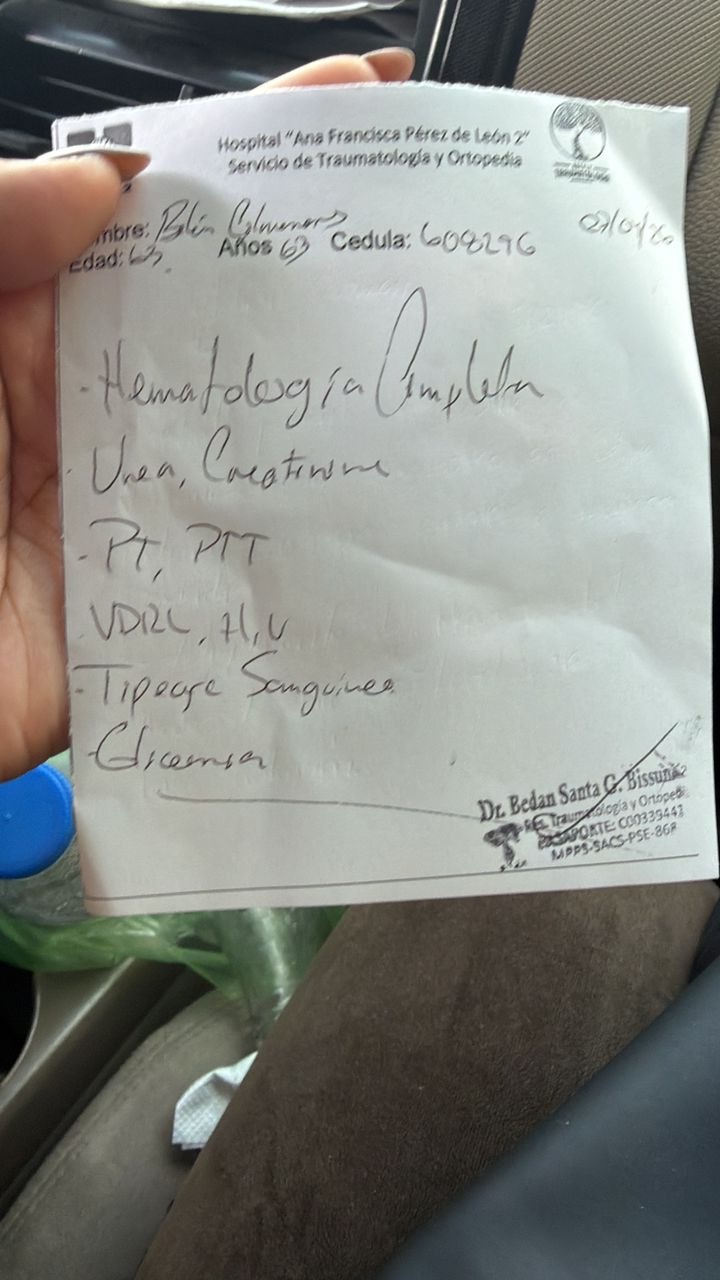 Hospital "Ana Francisca Pérez de León 2"
Servicio de Traumatología y Ortopedia
mbre: Belén Colmenares
Edad: 63 Años 63 Cedula: 608296
- Hematología Completa
- Urea, Creatinina
- PT, PTT
VDRL, H.I.V
- Tipeaje Sanguineo
- Glicemia
Dr. Bedan Santa G. Bissuna
Res. Traumatología y Ortoped
PASAPORTE: C00339443
MPPS-SACS-PSE-868